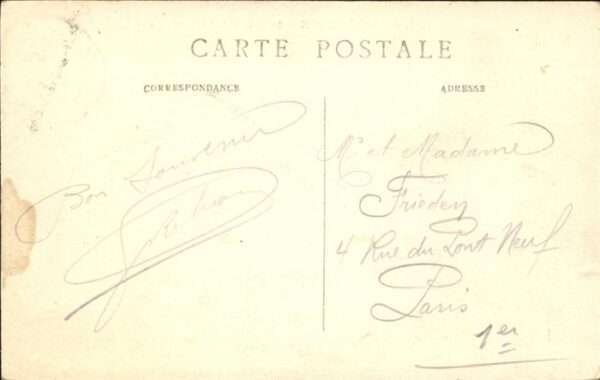 CARTE POSTALE
CORRESPONDANCE
ADRESSE
Bon Souvenir
Mr et Madame
Frieden
4 Rue du Pont Neuf
Paris
1er